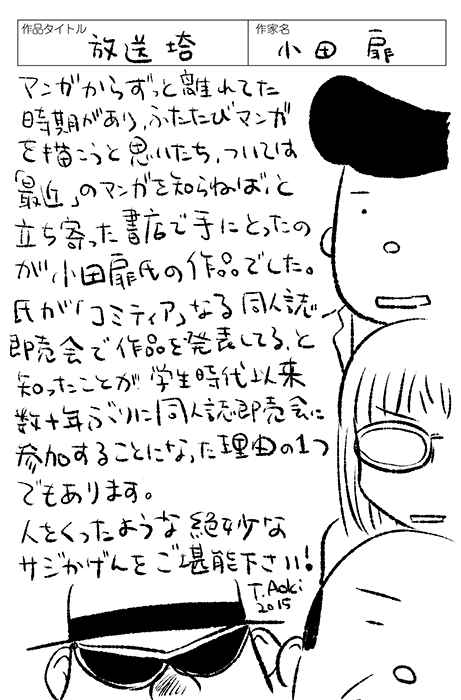 作品タイトル
放送塔
作家名
小田 扉
マンガからずっと離れてた
時期があり、ふたたびマンガ
を描こうと思いたち、ついては
「最近」のマンガを知らねば、と
立ち寄った書店で手にとったの
が小田扉氏の作品でした。
氏が「コミティア」なる同人誌
即売会で作品を発表してる、と
知ったことが学生時代以来
数十年ぶりに同人誌即売会に
参加することになった理由の1つ
でもあります。
人をくったような絶妙な
サジかげんをご堪能下さい!
T.Aoki
2015